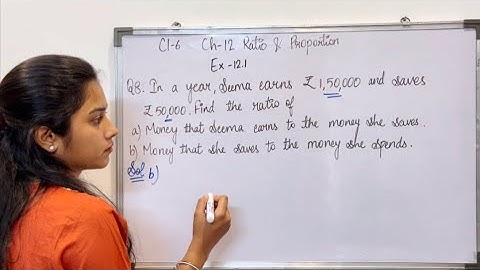 Cl-6 Ch-12 Ratio & Proportion
Ex-12.1
Q8. In a year, Seema earns ₹ 1,50,000 and saves
₹ 50,000. Find the ratio of
a) Money that Seema earns to the money she saves.
b) Money that she saves to the money she spends.
Sol b)